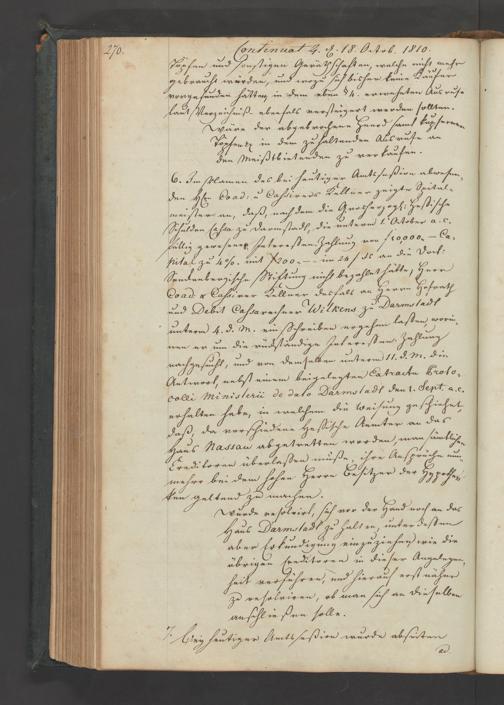 270.
Continuat 4. d. 18. Octob. 1810.
Töpfen und sonstigen Geräthschaften, welche nicht mehr
gebraucht würden, und wozu sich bisher keine Käufer
vorgefunden hätten, in dem eben § 4. erwehnten Ausrufe
laut Verzeichniß ebenfals versteigert werden sollten.
Wäre der abgebrochene Heerd samt kupfernen
Töpfen in dem zuhaltenden Ausrufe an
den Meistbietenden zu verkaufen.
6. Im Namen des bei heutiger Amtsseßion abwesen-
den H. Coad: u Cassireres Kellner zeigte Spital-
meister an, daß, nachdem die Grosherzogl: Hessische
Schulden Cassa zu Darmstadt, die unterm 1. October a. c.
fällig gewesene Interessen Zahlung von f 10,000 — Ca-
pital zu 4% mit f 200 — im 24 f an die Dorf:
Senckenbergische Stiftung nicht bezahlt hätte, Herr
Coad u Cassirer Kellner deshalb an Herrn Hofrath
und Debit Cassarechner Wilkens zu Darmstadt
unterm 4. d. M. ein Schreiben ergehen lassen worin-
nen er um die rückständige Interessen Zahlung
nachgesucht, und von demselben unterm 11. d. M. die
Antwort, nebst einem beigelegten Extracte Proto-
colli Ministerii de dato Darmstadt den 1. Sept. a. c.
erhalten habe, in welchem die Weisung geschiehet,
daß, da verschiedene Hessische Aemter an das
Haus Nassau abgetretten worden, man sämtlichen
Creditoren überlassen müße, ihre Ansprüche nun-
mehr bei dem hohen Herrn Besitzer der Hypothe-
ken geltend zu machen.
Wurde resolvirt, sich vor der Hand noch an das
Haus Darmstadt zu halten, unterdessen
aber Erkundigung einzuziehen wie die
übrigen Creditoren in dieser Angelegen-
heit verfahren, und hierauf erst näher
zu resolviren, ob man sich an dieselben
anschließen solle.
7. Bey heutiger Amtsseßion wurde abseiten